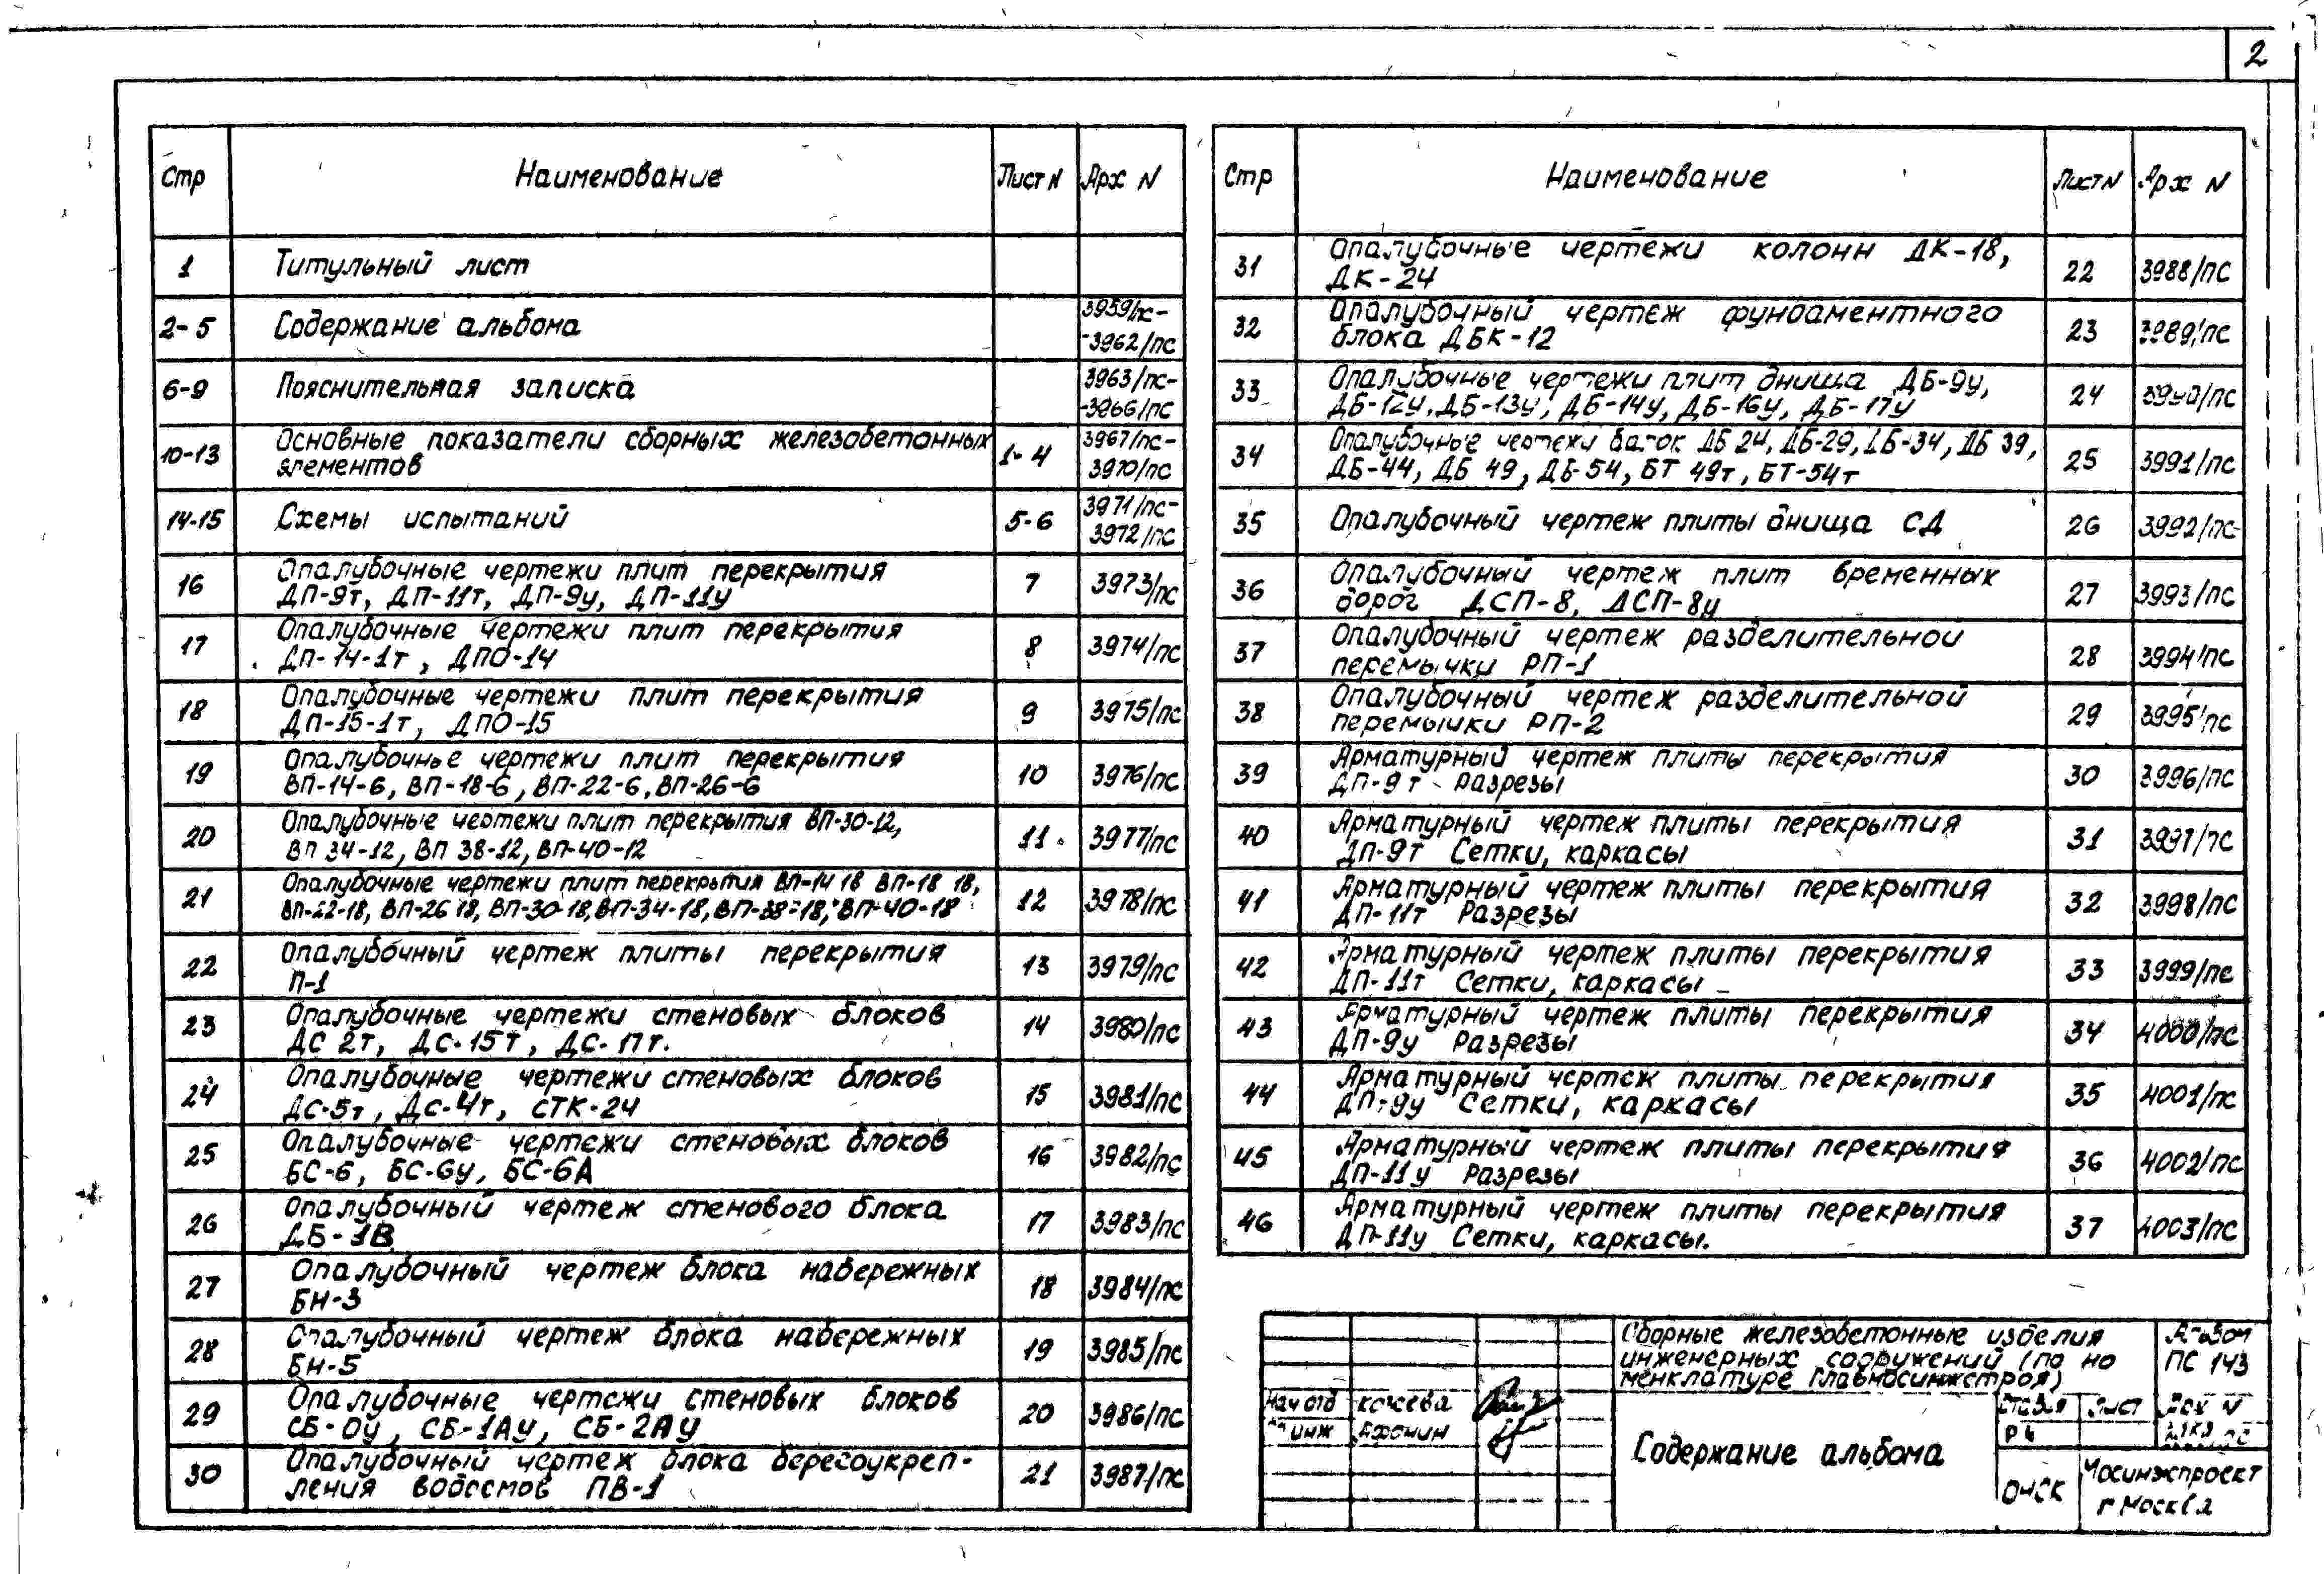 2
Стр Наименование Лист N Арх N
1 Титульный лист
2-5 Содержание альбома 3959/пс-
-3962/пс
6-9 Пояснительная записка 3963/пс-
-3966/пс
10-13 Основные показатели сборных железобетонных
элементов 1-4 3967/пс-
3970/пс
14-15 Схемы испытаний 5-6 3971/пс-
3972/пс
16 Опалубочные чертежи плит перекрытия
ДП-9т, ДП-11т, ДП-9у, ДП-11у 7 3973/пс
17 Опалубочные чертежи плит перекрытия
ДП-14-1т, ДПО-14 8 3974/пс
18 Опалубочные чертежи плит перекрытия
ДП-15-1т, ДПО-15 9 3975/пс
19 Опалубочные чертежи плит перекрытия
ВП-14-6, ВП-18-6, ВП-22-6, ВП-26-6 10 3976/пс
20 Опалубочные чертежи плит перекрытия ВП-30-12,
ВП 34-12, ВП 38-12, ВП-40-12 11 3977/пс
21 Опалубочные чертежи плит перекрытия ВП-14 18 ВП-18 18,
ВП-22-18, ВП-26 18, ВП-30-18, ВП-34-18, ВП-38-18, ВП-40-18 12 3978/пс
22 Опалубочный чертеж плиты перекрытия
П-1 13 3979/пс
23 Опалубочные чертежи стеновых блоков
ДС 2т, ДС-15т, ДС-17т. 14 3980/пс
24 Опалубочные чертежи стеновых блоков
ДС-5т, ДС-4т, СТК-24 15 3981/пс
25 Опалубочные чертежи стеновых блоков
БС-6, БС-6у, БС-6А 16 3982/пс
26 Опалубочный чертеж стенового блока
ДБ-1В 17 3983/пс
27 Опалубочный чертеж блока набережных
БН-3 18 3984/пс
28 Опалубочный чертеж блока набережных
БН-5 19 3985/пс
29 Опалубочные чертежи стеновых блоков
СБ-0у, СБ-1Ау, СБ-2Ау 20 3986/пс
30 Опалубочный чертеж блока берегоукреп-
ления водоемов ПВ-1 21 3987/пс
Стр Наименование Лист N Арх N
31 Опалубочные чертежи колонн ДК-18,
ДК-24 22 3988/пс
32 Опалубочный чертеж фундаментного
блока ДБК-12 23 3989/пс
33 Опалубочные чертежи плит днища ДБ-9у,
ДБ-12у, ДБ-13у, ДБ-14у, ДБ-16у, ДБ-17у 24 3990/пс
34 Опалубочные чертежи балок ДБ 24, ДБ-29, ДБ-34, ДБ 39,
ДБ-44, ДБ 49, ДБ-54, БТ 49т, БТ-54т 25 3991/пс
35 Опалубочный чертеж плиты днища СД 26 3992/пс
36 Опалубочный чертеж плит временных
дорог ДСП-8, ДСП-8у 27 3993/пс
37 Опалубочный чертеж разделительной
перемычки РП-1 28 3994/пс
38 Опалубочный чертеж разделительной
перемычки РП-2 29 3995/пс
39 Арматурный чертеж плиты перекрытия
ДП-9т Разрезы 30 3996/пс
40 Арматурный чертеж плиты перекрытия
ДП-9т Сетки, каркасы 31 3997/пс
41 Арматурный чертеж плиты перекрытия
ДП-11т Разрезы 32 3998/пс
42 Арматурный чертеж плиты перекрытия
ДП-11т Сетки, каркасы 33 3999/пс
43 Арматурный чертеж плиты перекрытия
ДП-9у Разрезы 34 4000/пс
44 Арматурный чертеж плиты перекрытия
ДП-9у Сетки, каркасы 35 4001/пс
45 Арматурный чертеж плиты перекрытия
ДП-11у Разрезы 36 4002/пс
46 Арматурный чертеж плиты перекрытия
ДП-11у Сетки, каркасы. 37 4003/пс
Сборные железобетонные изделия
инженерных сооружений (по но
менклатуре Главмосинжстроя)
Альбом
ПС 143
Нач отд
инж Афонин
Содержание альбома
Стадия Лист Арх N
РЧ
ОНСК
Мосинжпроект
г Москва